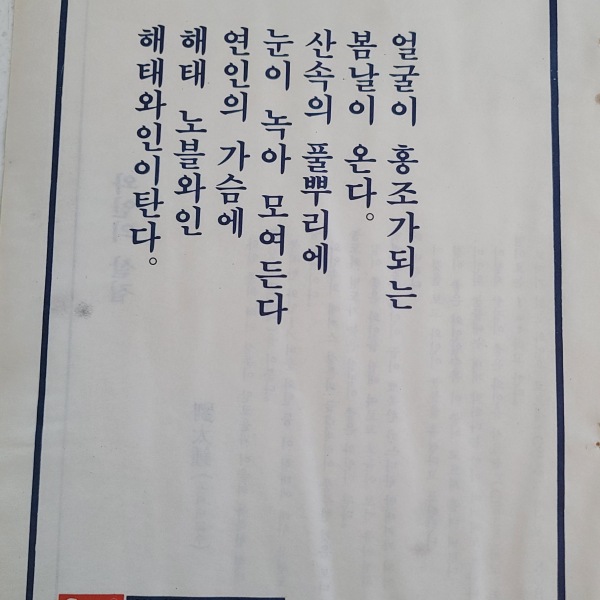 얼굴이 홍조가되는
봄날이 온다。
산속의 풀뿌리에
눈이 녹아 모여든다
연인의 가슴에
해태 노블와인
해태와인이탄다。